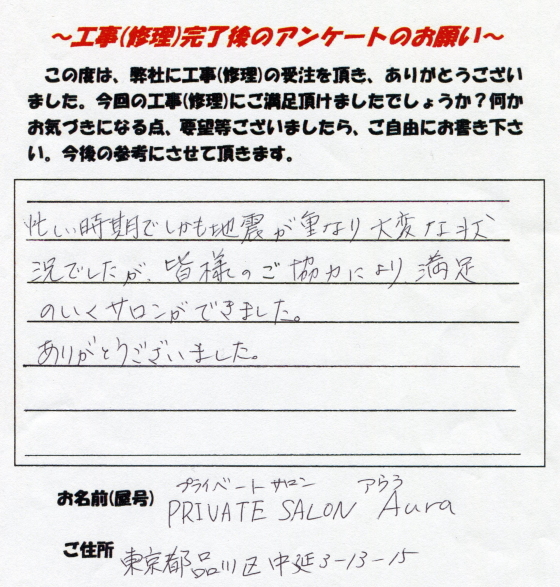 ~工事(修理)完了後のアンケートのお願い~
この度は、弊社に工事(修理)の受注を頂き、ありがとうござい
ました。今回の工事(修理)にご満足頂けましたでしょうか?何か
お気づきになる点、要望等ございましたら、ご自由にお書き下さ
い。今後の参考にさせて頂きます。
忙しい時期でしかも地震が重なり大変な状
況でしたが、皆様のご協力により、満足
のいくサロンができました。
ありがとうございました。
プライベートサロン アウラ
お名前(屋号) PRIVATE SALON Aura
ご住所 東京都品川区中延3-13-15